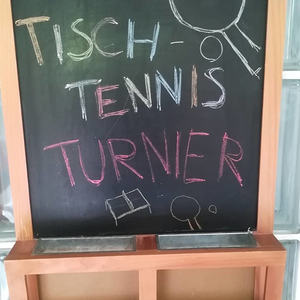 TISCH-
TENNIS
TURNIER